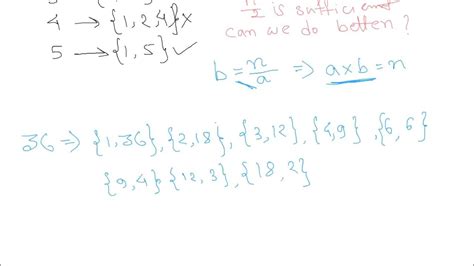 n/2 is sufficient
4 → {1,2,4}×
can we do better?
5 → {1,5}✓
b = n/a ⇒ a×b = n
36 ⇒ {1,36},{2,18},{3,12},{4,9},{6,6}
{9,4},{12,3},{18,2}